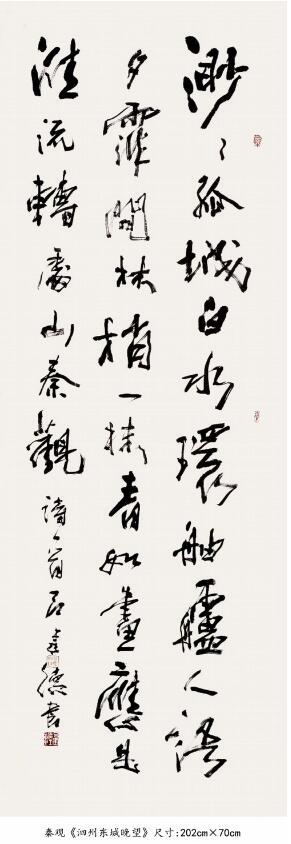 渺〻孤城白水環舳艫人語
夕霏間林梢一抹青如畫應是
淮流轉處山秦觀詩 書
秦观《泗州东城晚望》尺寸:202cm×70cm